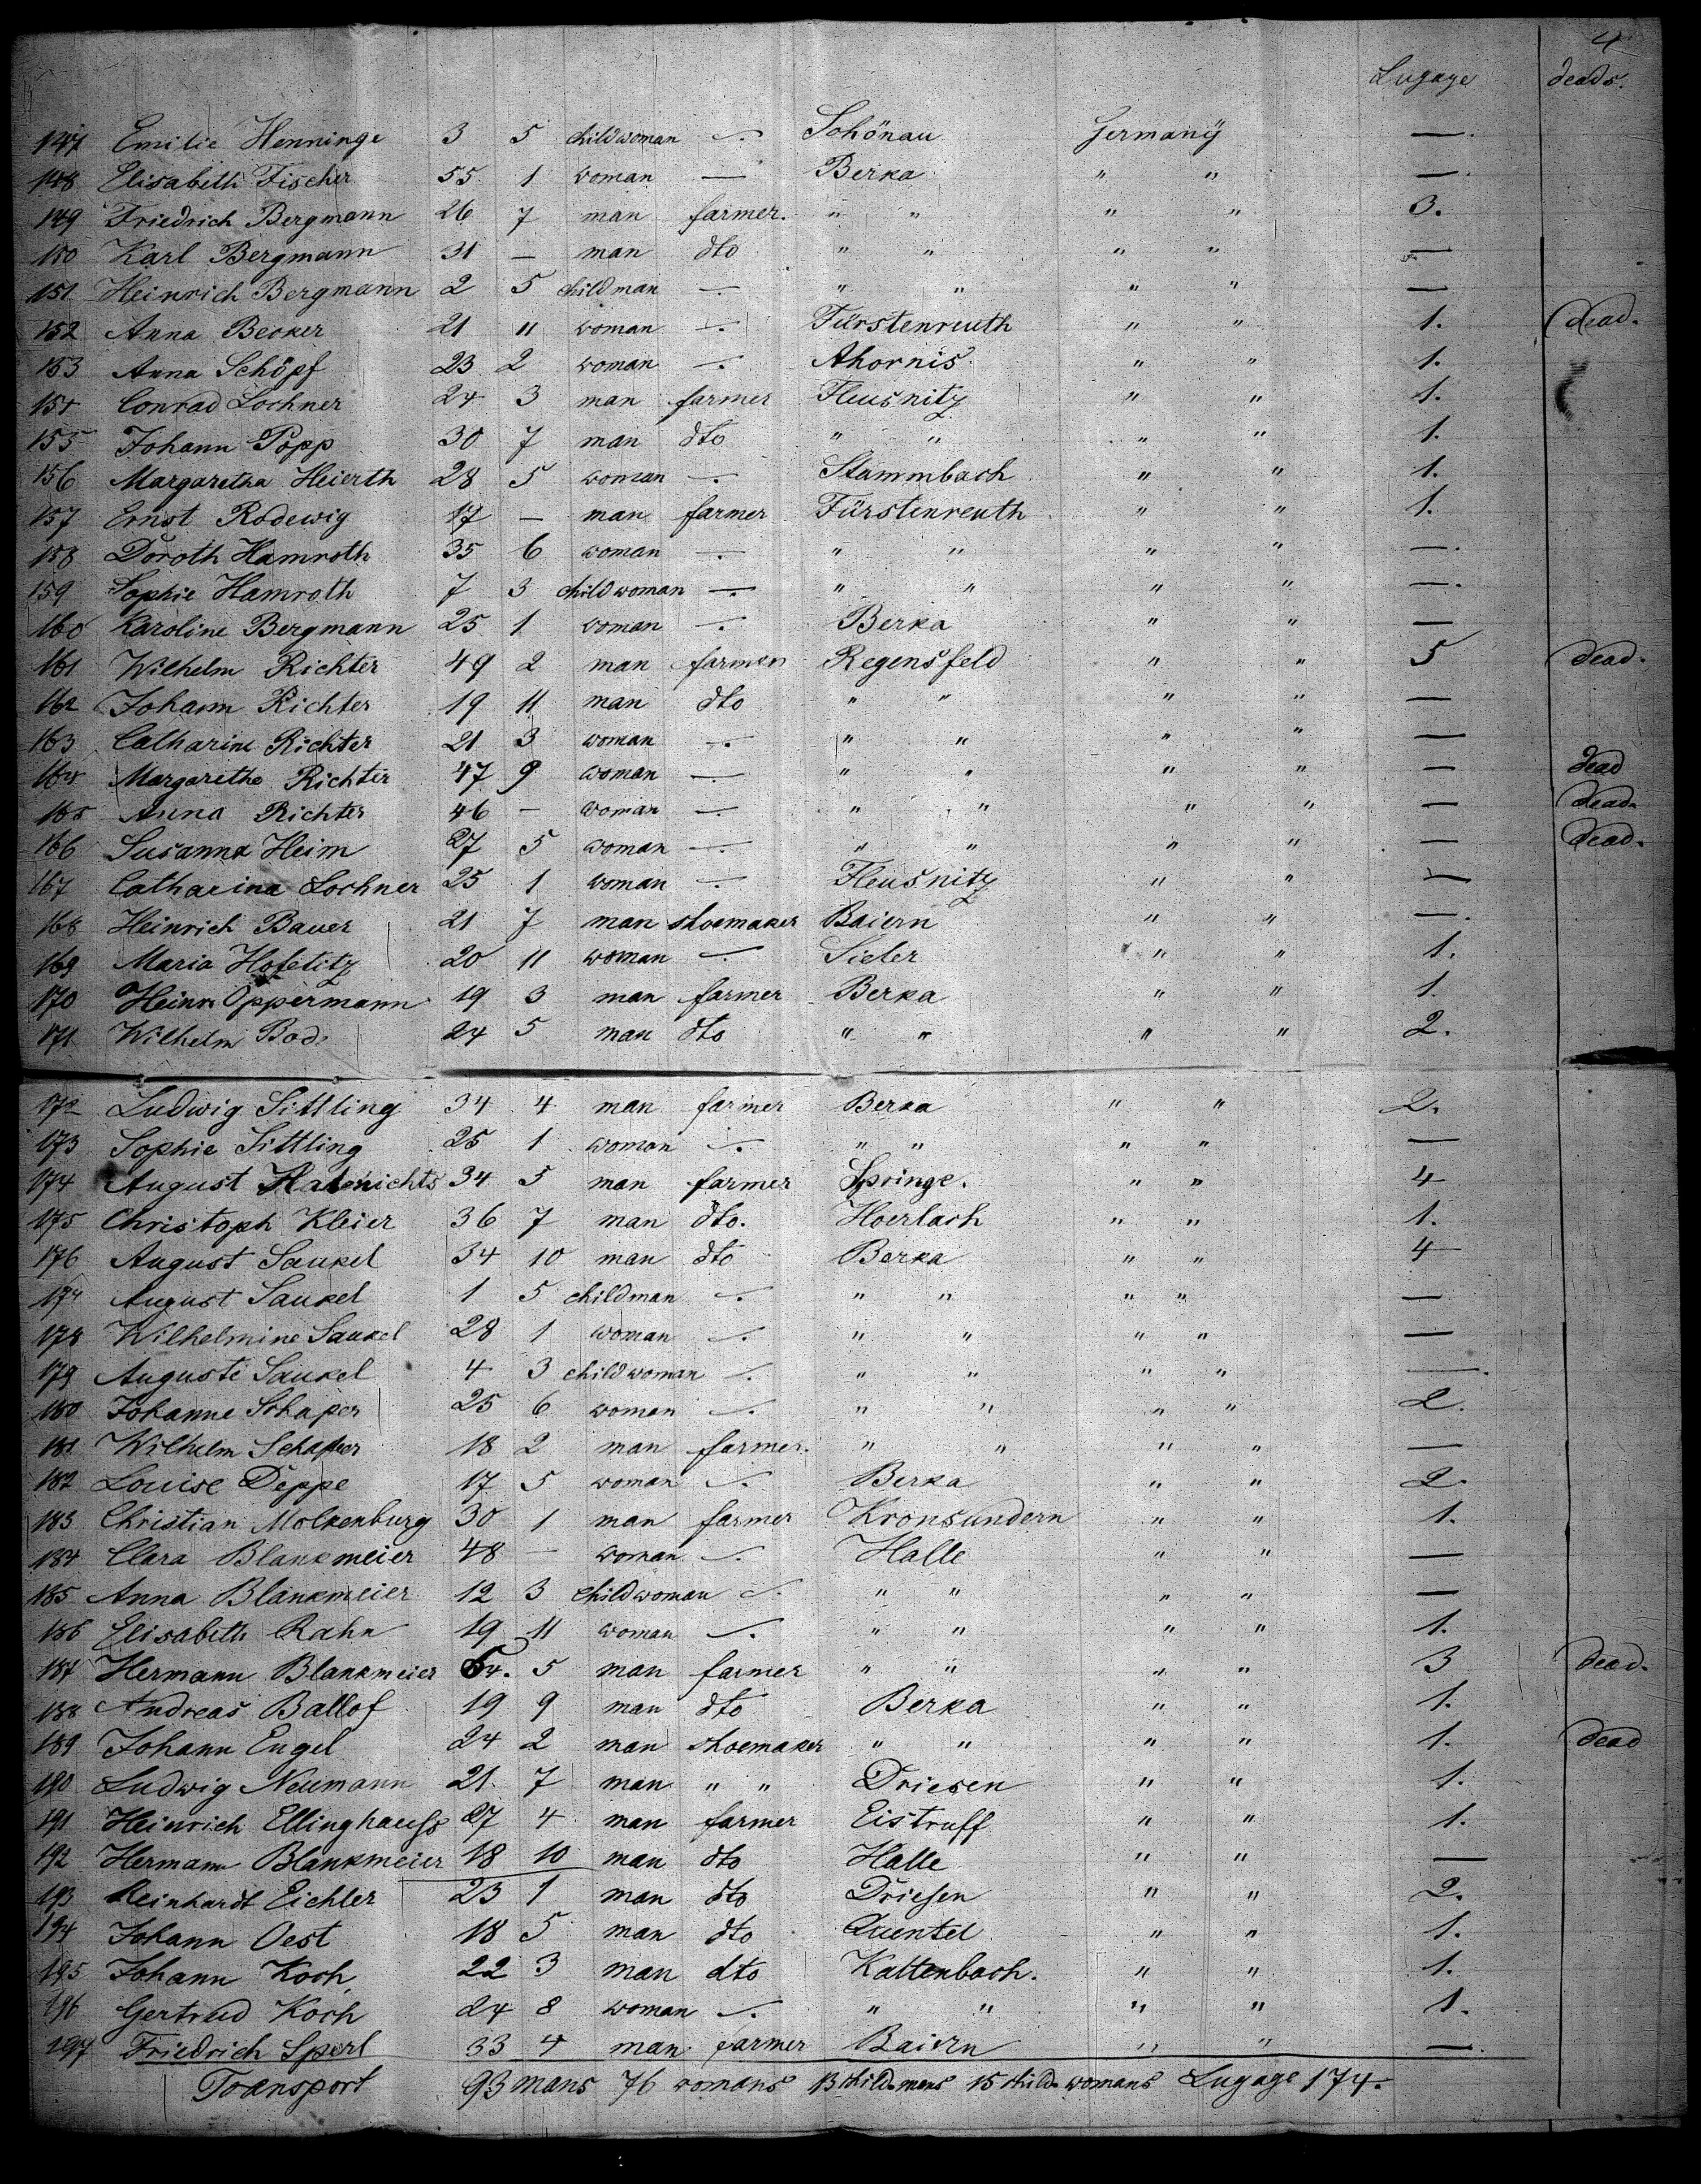 4
Lugage deads.
147 Emilie Henninge 3 5 childwoman —. Schönau Germany —.
148 Elisabeth Fischer 55 1 woman — Berka " " —.
149 Friedrich Bergmann 26 7 man farmer. " " " " 3.
150 Karl Bergmann 31 — man dto " " " " —
151 Heinrich Bergmann 2 5 childman —. " " " " —
152 Anna Becker 21 11 woman —. Fürstenreuth " " 1. dead.
153 Anna Schöpf 23 2 woman —. Ahornis. " " 1.
154 Conrad Lochner 24 3 man farmer Fleusnitz " " 1.
155 Johann Popp 30 7 man dto " " " " 1.
156 Margaretha Heierth 28 5 woman —. Stammbach " " 1.
157 Ernst Rodewig 17 — man farmer Fürstenreuth " " 1.
158 Doroth Hamroth 35 6 woman —. " " " " —.
159 Sophie Hamroth 7 3 childwoman —. " " " " —.
160 Karoline Bergmann 25 1 woman —. Berka " " —
161 Wilhelm Richter 49 2 man farmer Regensfeld " " 5 dead.
162 Johann Richter 19 11 man dto " " " " —
163 Catharine Richter 21 3 woman —. " " " " —
164 Margarethe Richter 47 9 woman —. " " " " — dead
165 Anna Richter 46 — woman —. " " " " — dead.
166 Susanna Heim 27 5 woman —. " " " " — dead.
167 Catharina Lochner 25 1 woman —. Fleusnitz " " —
168 Heinrich Bauer 21 7 man shoemaker Baiern " " —.
169 Maria Hofetitz 20 11 woman —. Sieler " " 1.
170 Heinr. Oppermann 19 3 man farmer Berka " " 1.
171 Wilhelm Bod. 24 5 man dto " " " " 2.
172 Ludwig Sittling 34 4 man farmer Berka " " 2.
173 Sophie Sittling 25 1 woman —. " " " " —
174 August Habenichts 34 5 man farmer Springe. " " 4
175 Christoph Kleier 36 7 man dto. Hoerlach " " 1.
176 August Saukel 34 10 man dto Berka " " 4
177 August Saukel 1 5 childman —. " " " " —
178 Wilhelmine Saukel 28 1 woman —. " " " " —
179 Auguste Saukel 4 3 childwoman —. " " " " —.
180 Johanne Schaper 25 6 woman —. " " " " 2.
181 Wilhelm Schaper 18 2 man farmer. " " " " —
182 Louise Deppe 17 5 woman —. Berka " " 2.
183 Christian Molkenburg 30 1 man farmer Kronsundern " " 1.
184 Clara Blankmeier 48 — woman —. Halle " " —
185 Anna Blankmeier 12 3 childwoman —. " " " " —
186 Elisabeth Rahn 19 11 woman —. " " " " 1.
187 Hermann Blankmeier 64. 5 man farmer " " " " 3 dead.
188 Andreas Ballof 19 9 man dto Berka " " 1.
189 Johann Engel 24 2 man shoemaker " " " " 1. dead
190 Ludwig Neumann 21. 7 man " " Driesen " " 1.
191 Heinrich Ellinghauss 27 4 man farmer Eistruff " " 1.
192 Hermann Blankmeier 18 10 man dto Halle " " —
193 Reinhardt Eichler 23 1 man dto Driesen " " 2.
194 Johann Oest 18 5 man dto Quentel " " 1.
195 Johann Koch 22 3 man dto Kattenbach. " " 1.
196 Gertrud Koch 24 8 woman —. " " " " 1.
197 Friedrich Sperl 33 4 man farmer Baiern " " —.
Transport 93 mans 76 womans 13 child. mens 15 child. womans Lugage 174.